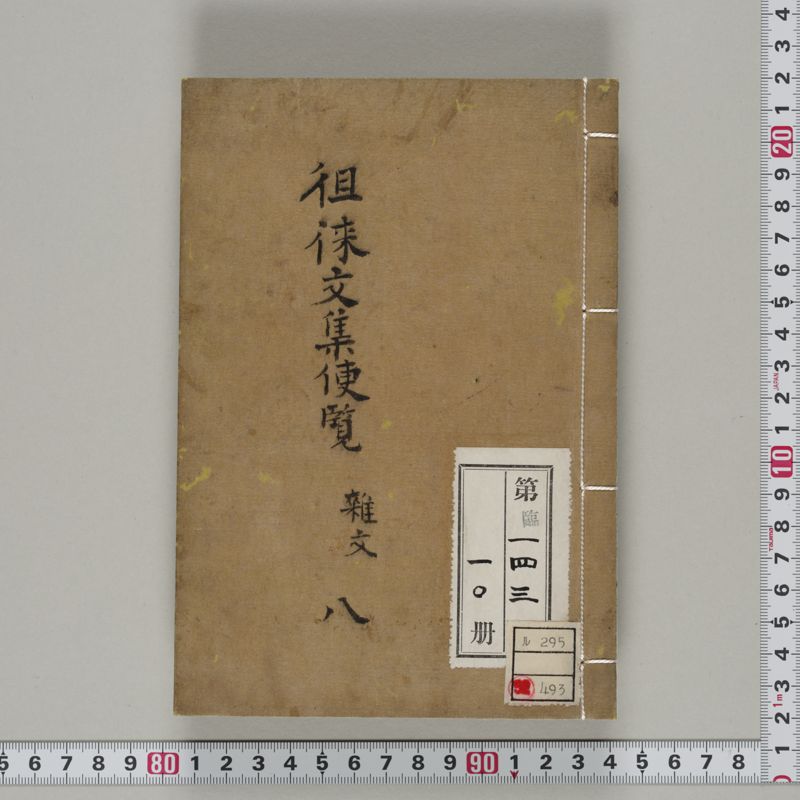 徂徠文集便覧
雜文
八
第臨一四三
一〇册
ル 295
493
4
3
2
1
20
9
8
7
6
5
4
3
JAPAN
2
1
10
9
8
TAJIMA
7
6
5
4
3
1m
2
1
5 6 7 8 9 80 1 2 3 4 5 6 7 8 9 90 1 2 3 4 5 6 7 8